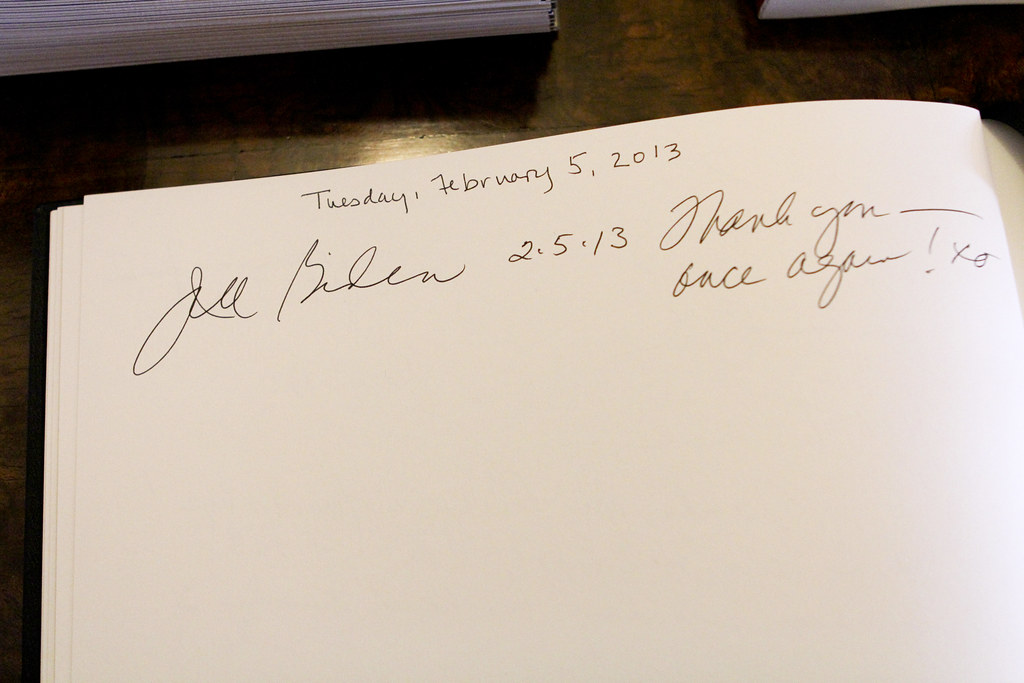 Tuesday, February 5, 2013
Jill Biden 2.5.13 Thank you —
once again! xo